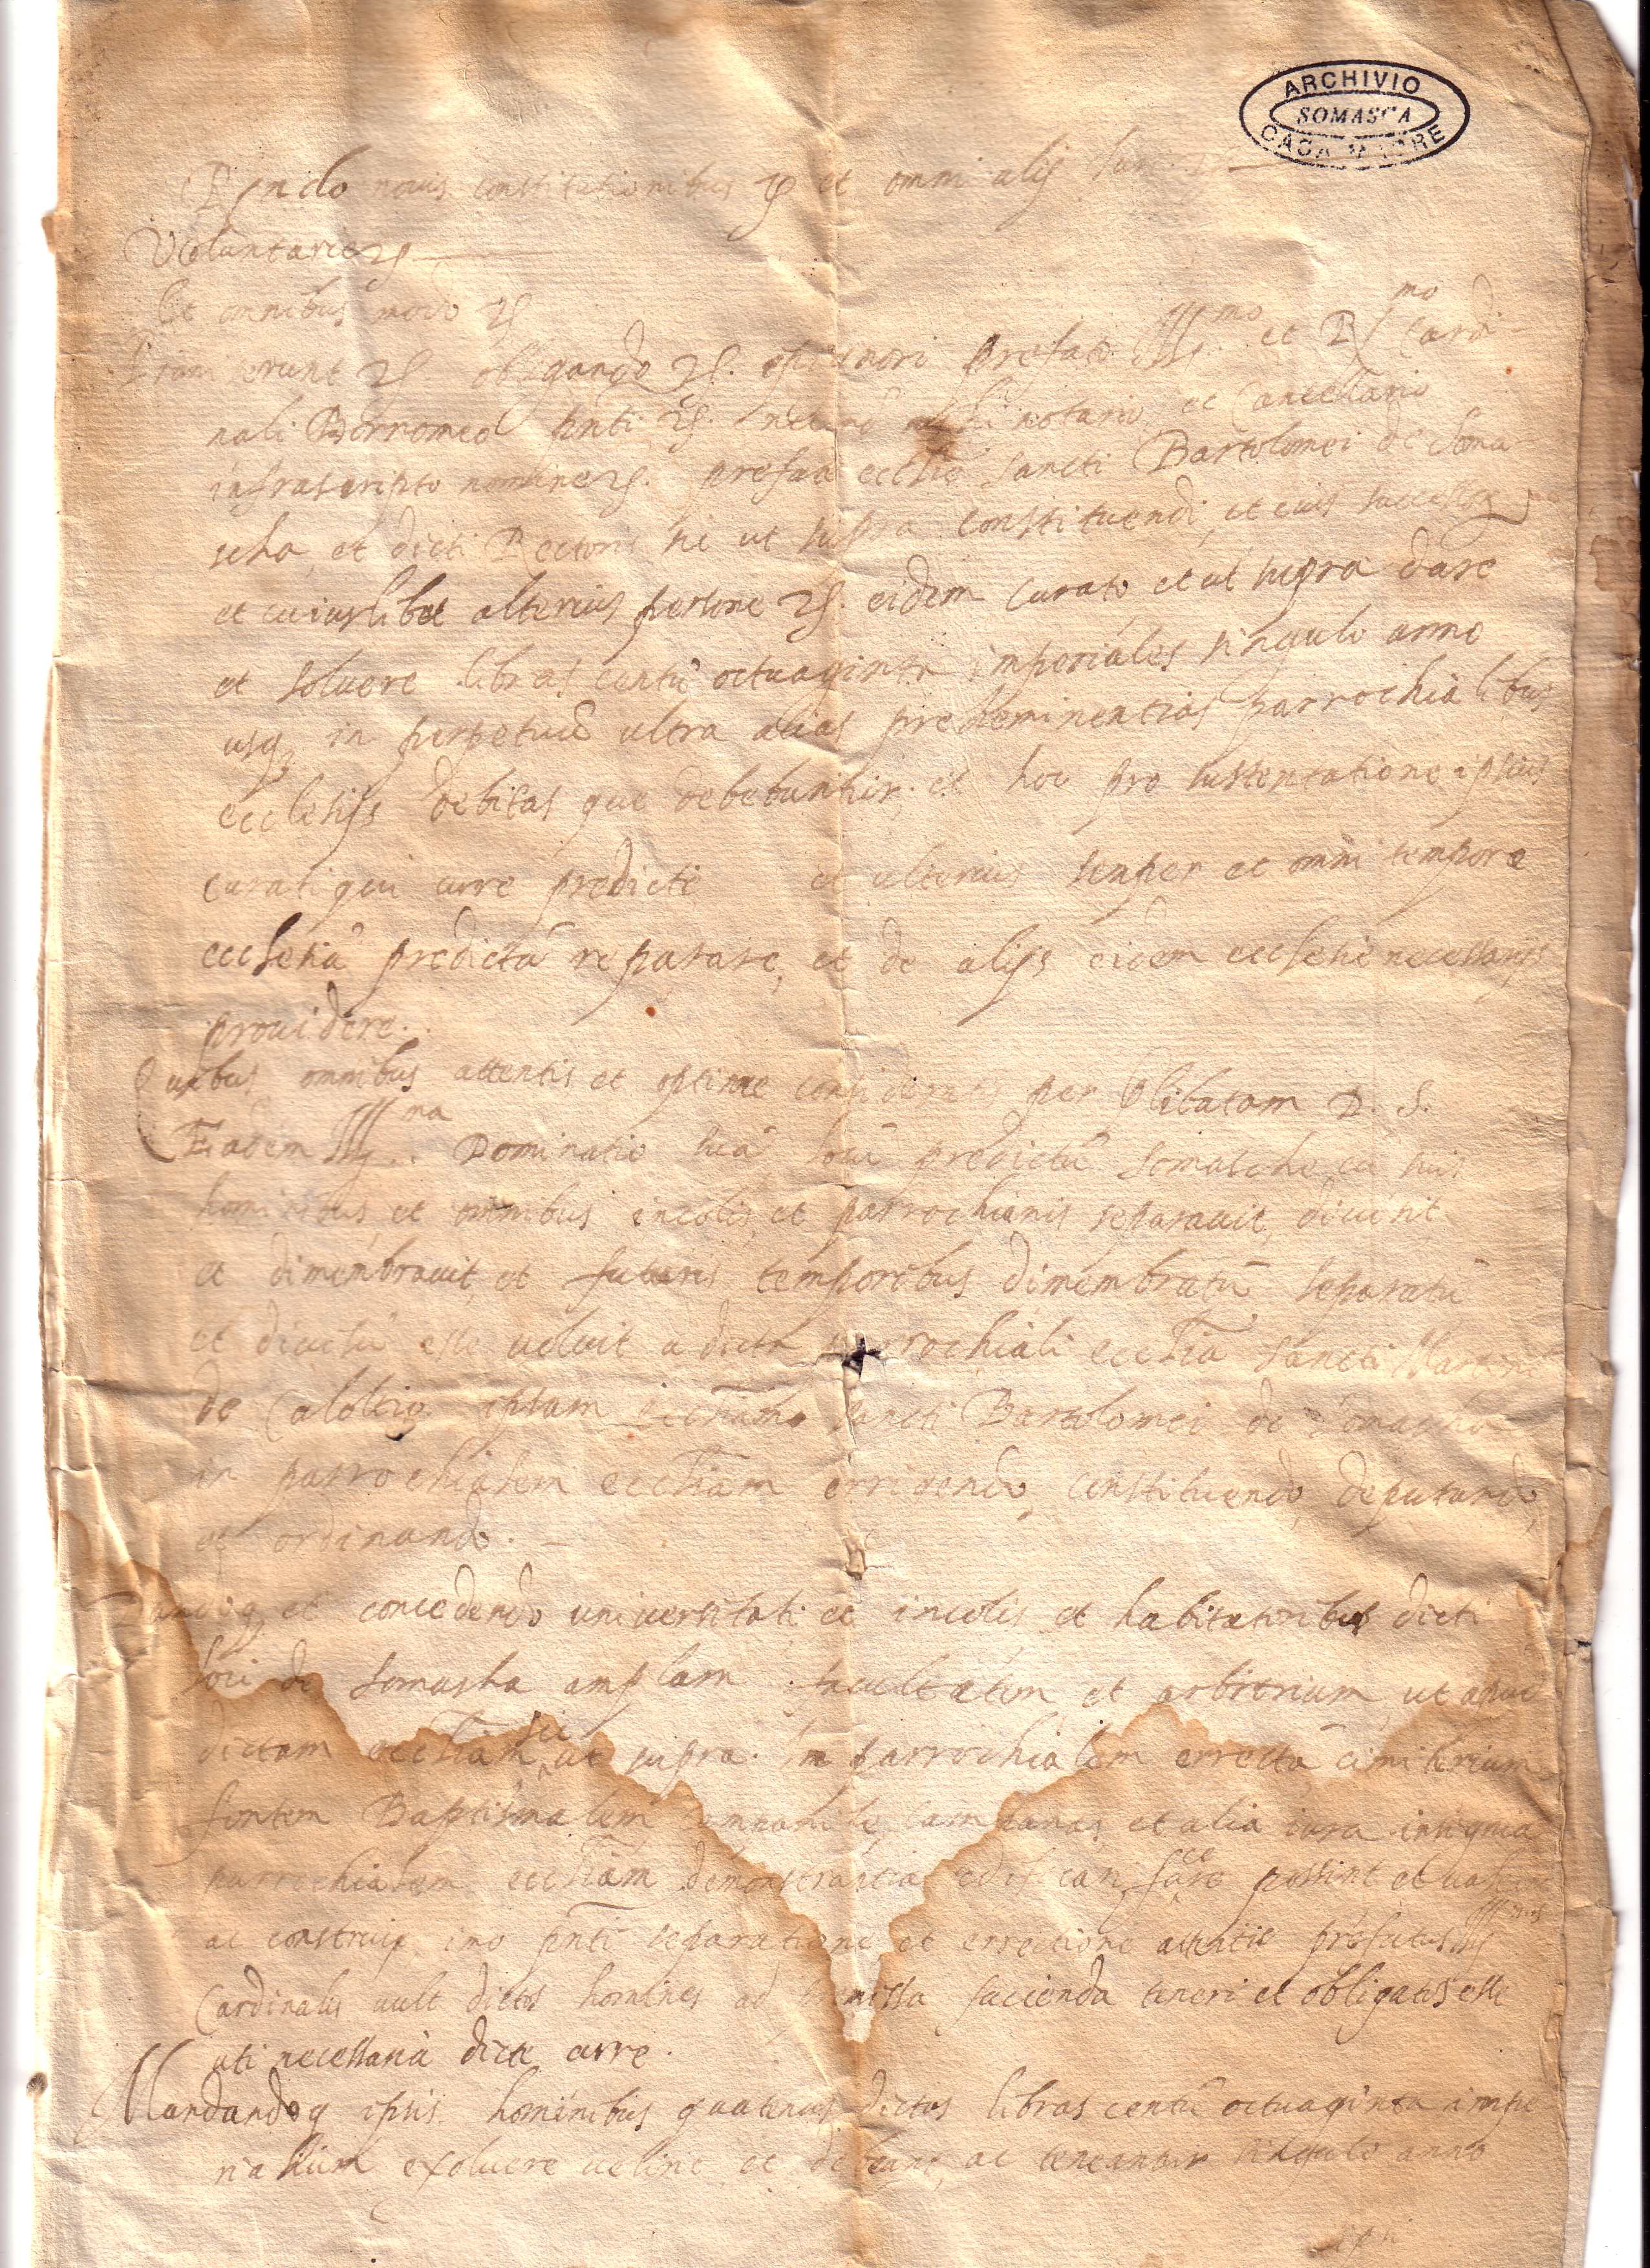 ARCHIVIO
SOMASCA
CASA MADRE
novis constitutionibus et omni alij
Voluntarie
Et omnibus modo
obligando prefato Ill.mo et R.mo Cardi-
nali Borromeo pnti notario et Cancellario
infrascripto nomine ecclie sancti Bartolomei de Soma
scha, et dicti Rectoris sic ut supra constituendi, et eius
et cuiuslibet alterius persone eidem curato et ut supra dare
et soluere libras centu octuaginta imperiales singulo anno
usq in perpetuu ultra alias preheminentias parrochialibus
ecclesijs debitas que debebuntur, et hoc pro sustentatione ipsius
curati qui cure predicte et ulterius semper et omni tempore
ecclesia predicta reparare, et de alijs eidem ecclesie necessarijs
prouidere.
Quibus omnibus attentis et optime consideratis per plibatam D. S.
Eadem Ill.ma Dominatio sua locu predictu Somasche, cu suis
hominibus, et omnibus incolis, et parrochianis separauit, diuisit
et dimembrauit, et futuris temporibus dimembratu separatu
et diuisu esse uoluit a dicta parrochiali ecclia sancti Martini
de Calolcio ipsam eccliam sancti Bartolomei de Somascha
in parrochialem eccliam errigendo, constituendo, deputando,
et ordinando.
et concedendo uniuersitati et incolis et habitatoribus dicti
loci de Somasha amplam facultatem et arbitrium, ut apud
dictam eccliam sic ut supra in parrochialem errecta cimiterium
fontem Baptismalem campanas et alia iura insignia
parrochialem eccliam demonstrantia edificari face possint et
ac construi, imo pnti separatione et errectione prefatus Ill.mus
Cardinalis uult dictos homines ad premissa facienda teneri et obligatos esse
uti necessaria dicte curre.
Mandandoq ipsis hominibus quatenus dictas libras centu octuaginta impe
rialium exoluere uelint et debeant, ac teneantur singulo anno